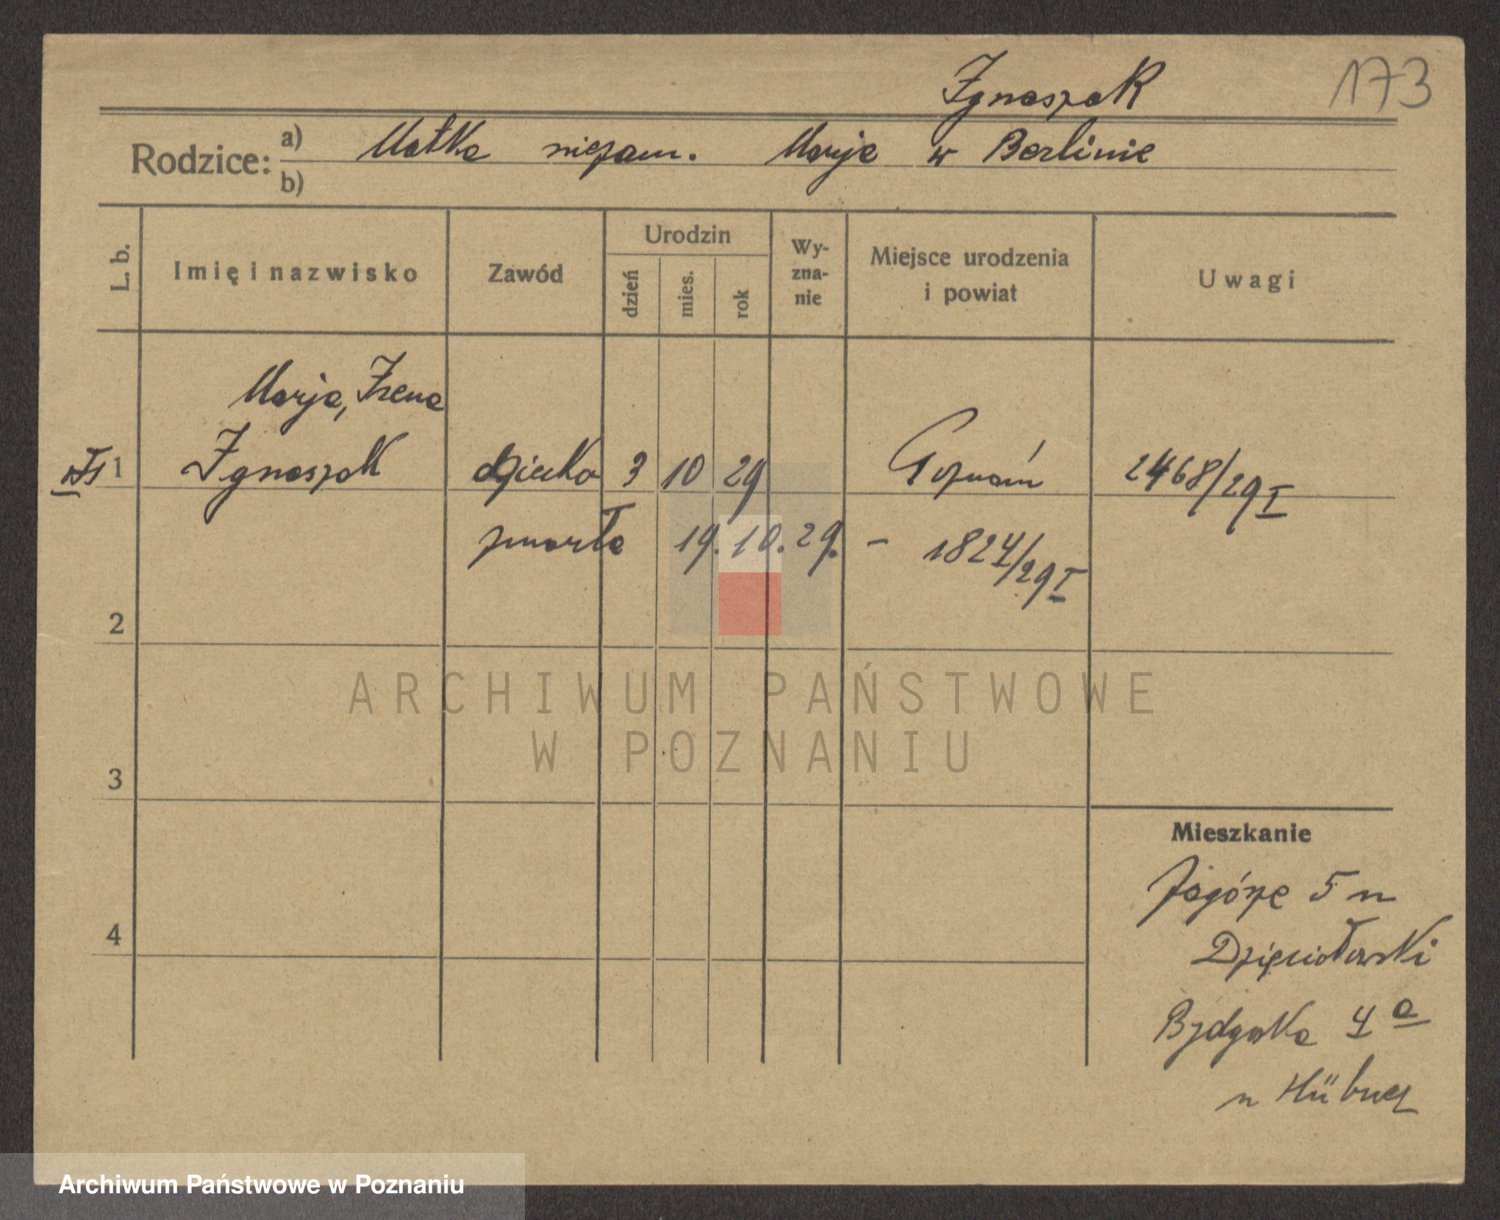 Ignaszak 173
Rodzice: a) Matka niezam. Marja w Berlinie
b)
L. b. Imię i nazwisko Zawód Urodzin Wy-zna-nie Miejsce urodzenia i powiat Uwagi
dzień mies. rok
Marja, Irena
1 Ignaszak dziecko 3 10 29 Poznań 2468/29 I
zmarła 19. 10. 29. – 1824/29 I
2
ARCHIWUM PAŃSTWOWE
W POZNANIU
3
Mieszkanie
Zagórze 5 u
4 Dzięciołowski
Bydgoska 4 a
u Hübner
Archiwum Państwowe w Poznaniu